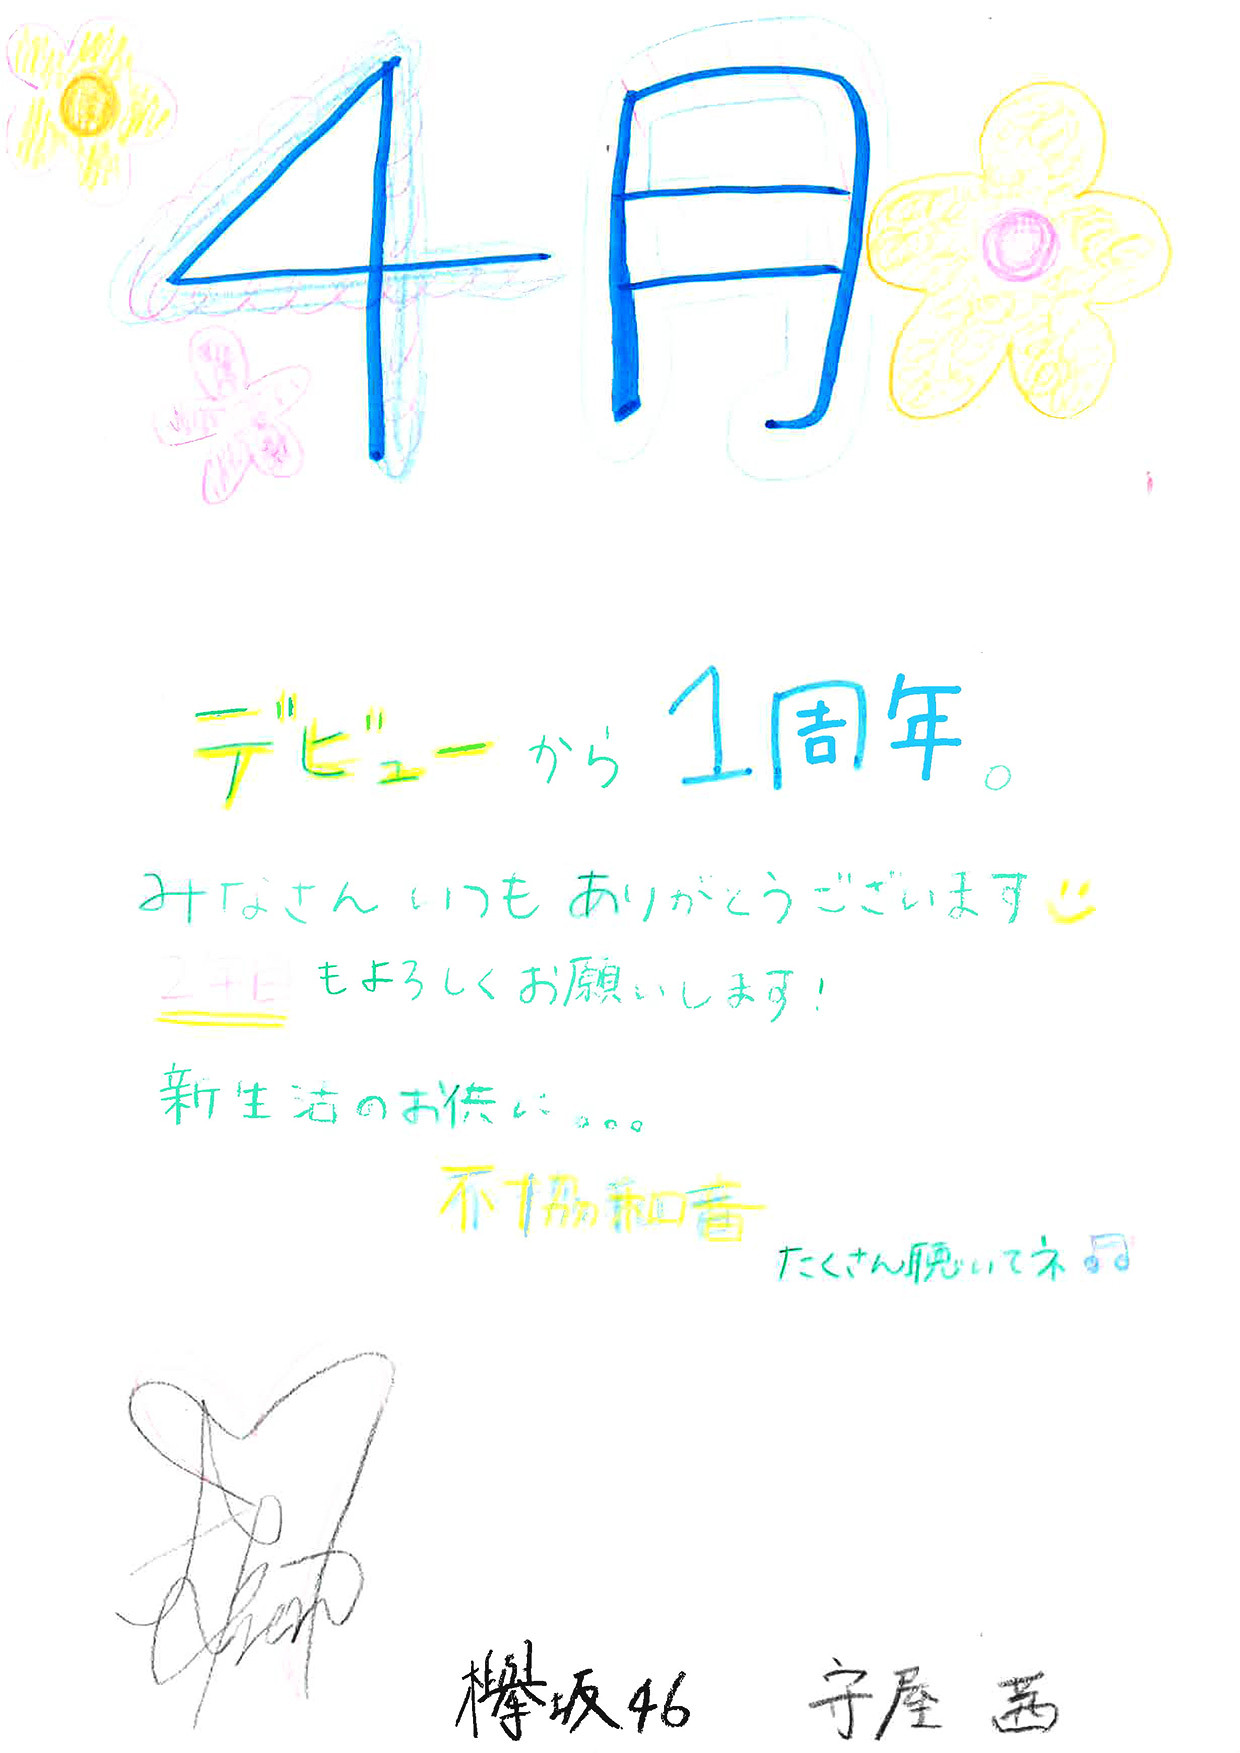 4月
デビューから1周年。
みなさんいつもありがとうございます
2年目もよろしくお願いします!
新生活のお供に。。。
不協和音
たくさん聴いてネ♫
欅坂46 守屋 茜